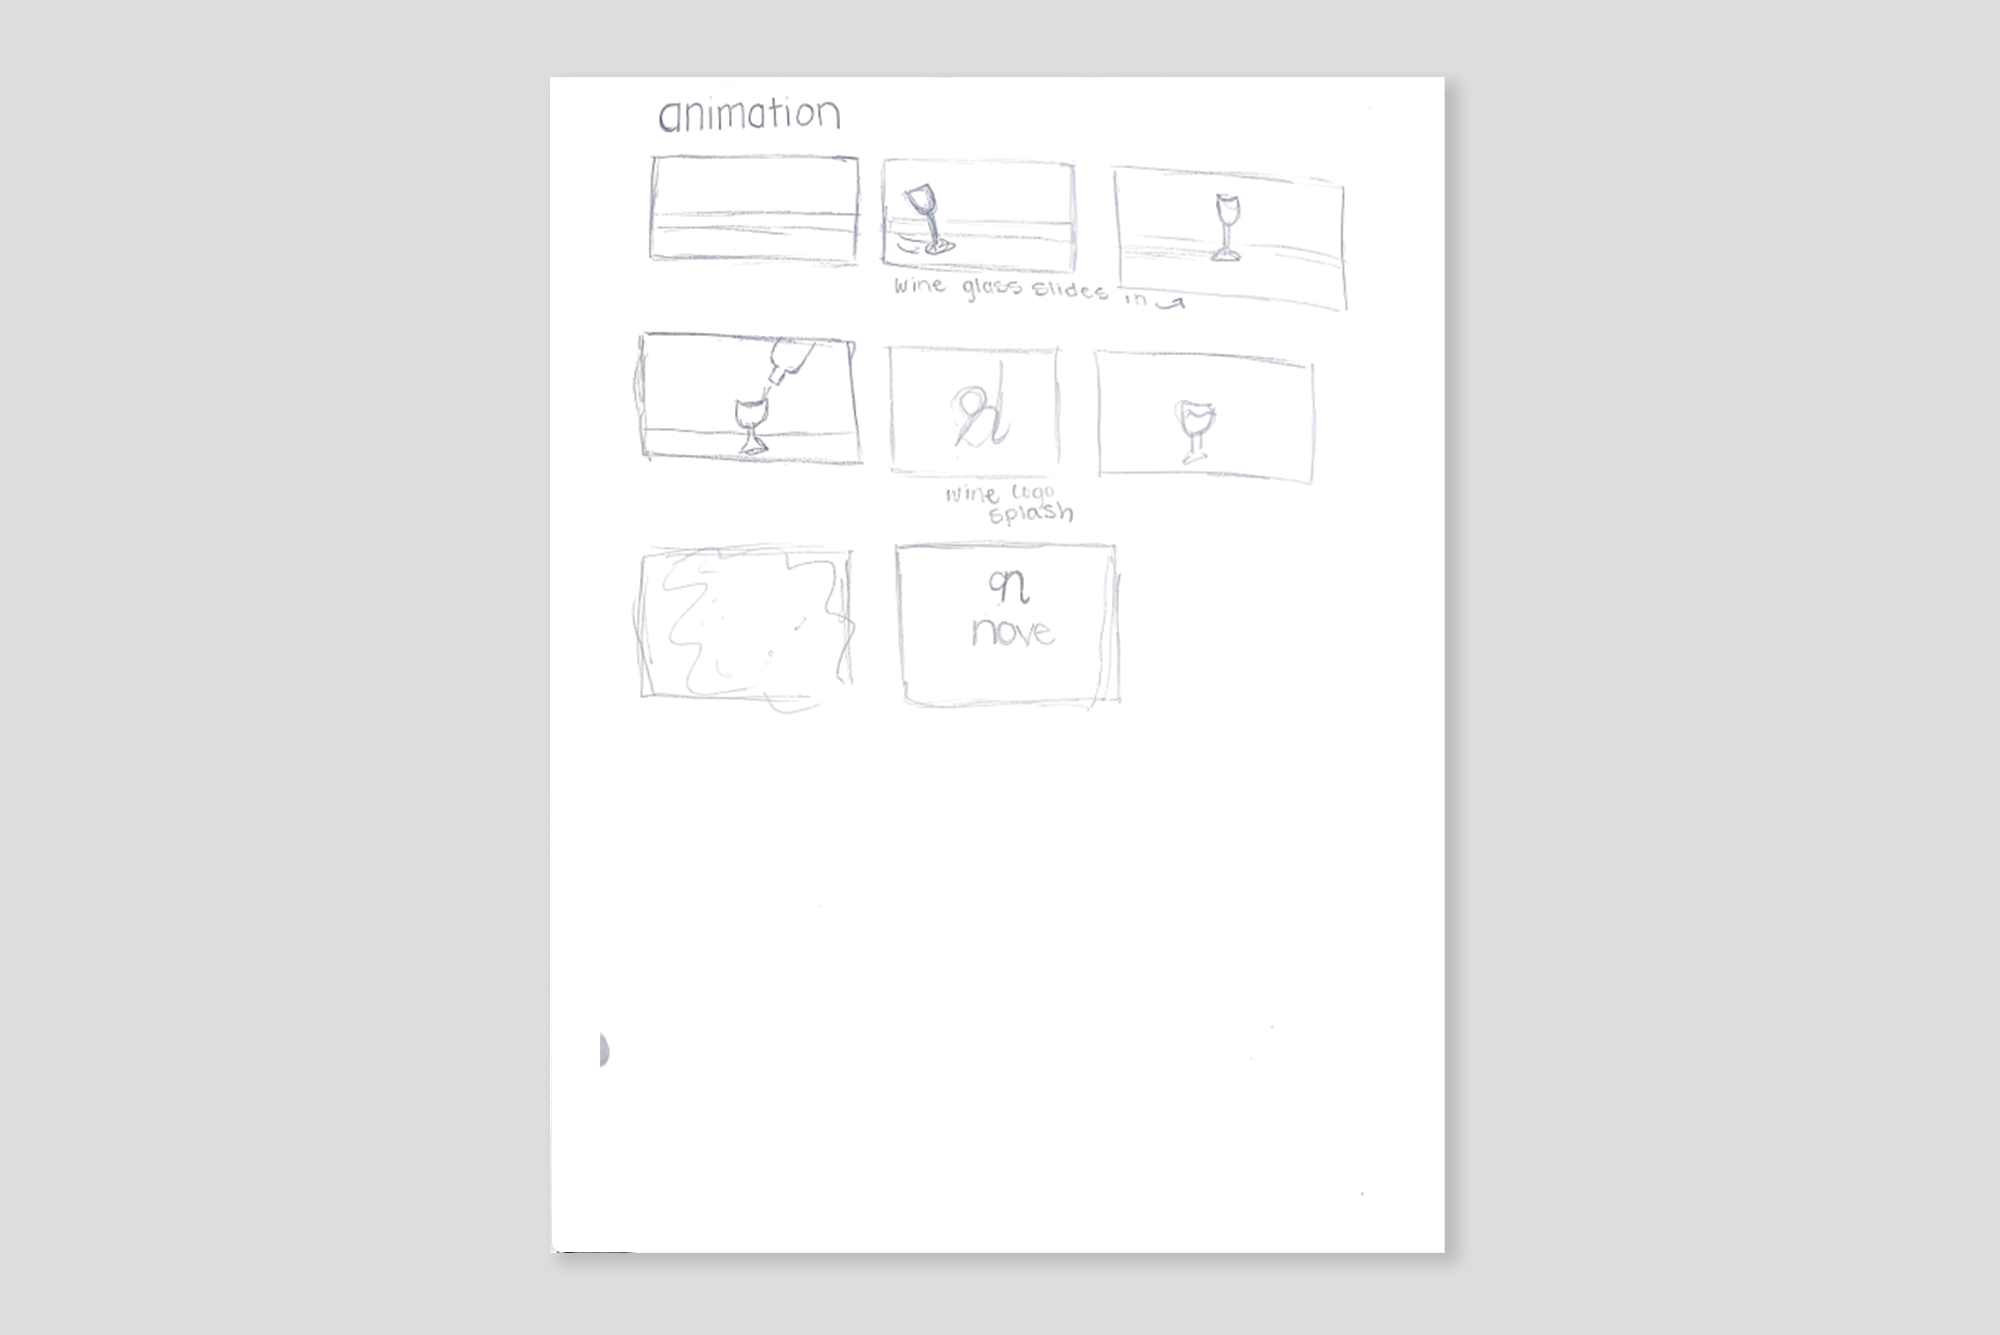 animation
wine glass slides in
wine logo
splash
n
nove